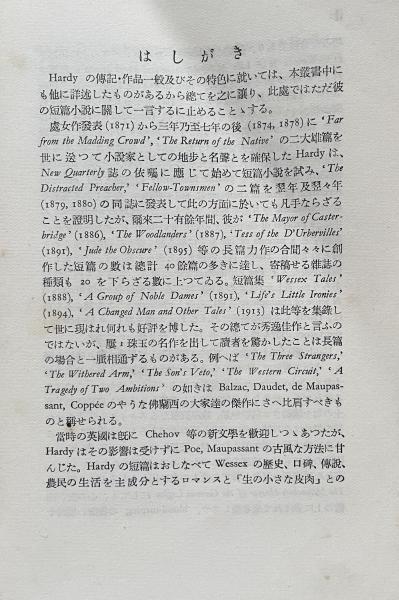 はしがき
Hardy の傳記・作品一般及びその特色に就いては、本叢書中に
も他に詳述したものがあるから總てを之に讓り、此處ではただ彼
の短篇小説に關して一言するに止めることゝする。
處女作發表 (1871) から三年乃至七年の後 (1874, 1878) に 'Far
from the Madding Crowd', 'The Return of the Native' の二大雄篇を
世に送つて小説家としての地歩と名聲とを確保した Hardy は、
New Quarterly 誌の依囑に應じて始めて短篇小説を試み、'The
Distracted Preacher,' 'Fellow-Townsmen' の二篇を翌年及翌々年
(1879, 1880) の同誌に發表して此の方面に於いても凡手ならざる
ことを證明したが、爾來二十有餘年間、彼が 'The Mayor of Caster-
bridge' (1886), 'The Woodlanders' (1887), 'Tess of the D'Urbervilles'
(1891), 'Jude the Obscure' (1895) 等の長篇力作の合間々々に創
作した短篇の數は總計 40 餘篇の多きに達し、寄稿せる雜誌の
種類も 20 を下らざる數に上つてゐる。短篇集 'Wessex Tales'
(1888), 'A Group of Noble Dames' (1891), 'Life's Little Ironies'
(1894), 'A Changed Man and Other Tales' (1913) は此等を集錄し
て世に現はれ何れも好評を博した。その總てが秀逸佳作と言ふの
ではないが、屢々珠玉の名作を出して讀者を驚かしたことは長篇
の場合と一脈相通ずるものがある。例へば 'The Three Strangers,'
'The Withered Arm,' 'The Son's Veto,' 'The Western Circuit,' 'A
Tragedy of Two Ambitions' の如きは Balzac, Daudet, de Maupas-
sant, Coppée のやうな佛蘭西の大家達の傑作にさへ比肩すべきも
のと稱せられる。
當時の英國は旣に Chehov 等の新文學を歡迎しつゝあつたが、
Hardy はその影響は受けずに Poe, Maupassant の古風な方法に甘
んじた。Hardy の短篇はおしなべて Wessex の歴史、口碑、傳說、
農民の生活を主成分とするロマンスと「生の小さな皮肉」との